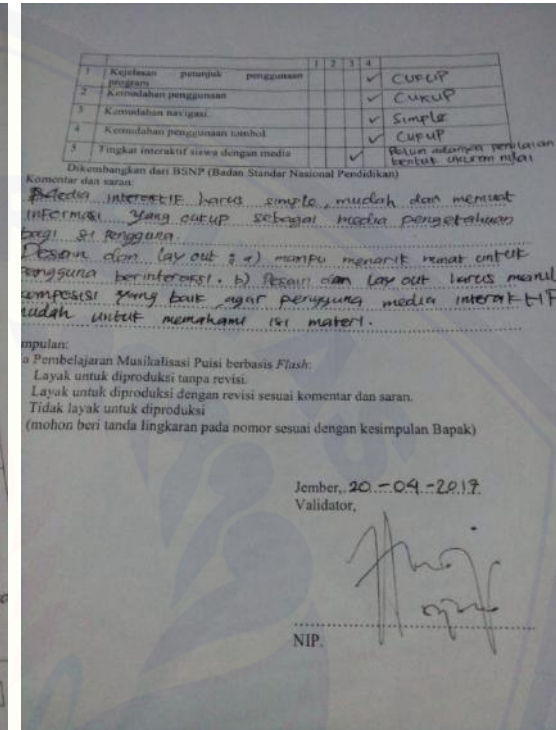 1 2 3 4
1 Kejelasan petunjuk penggunaan program ✓ CUKUP
2 Kemudahan penggunaan ✓ CUKUP
3 Kemudahan navigasi. ✓ Simple
4 Kemudahan penggunaan tombol ✓ CUKUP
5 Tingkat interaktif siswa dengan media ✓ Belum adanya penilaian
bentuk ukuran nilai
Dikembangkan dari BSNP (Badan Standar Nasional Pendidikan)
Komentar dan saran:
Media interaktif harus simple, mudah dan memuat
informasi yang cukup sebagai media pengetahuan
bagi si pengguna.
Desain dan lay out : a) mampu menarik minat untuk
pengguna berinteraksi. b) Desain dan lay out harus
komposisi yang baik agar pengguna media interaktif
mudah untuk memahami isi materi.
mpulan:
a Pembelajaran Musikalisasi Puisi berbasis Flash:
Layak untuk diproduksi tanpa revisi.
Layak untuk diproduksi dengan revisi sesuai komentar dan saran.
Tidak layak untuk diproduksi
(mohon beri tanda lingkaran pada nomor sesuai dengan kesimpulan Bapak)
Jember, 20 - 04 - 2017
Validator,
NIP.